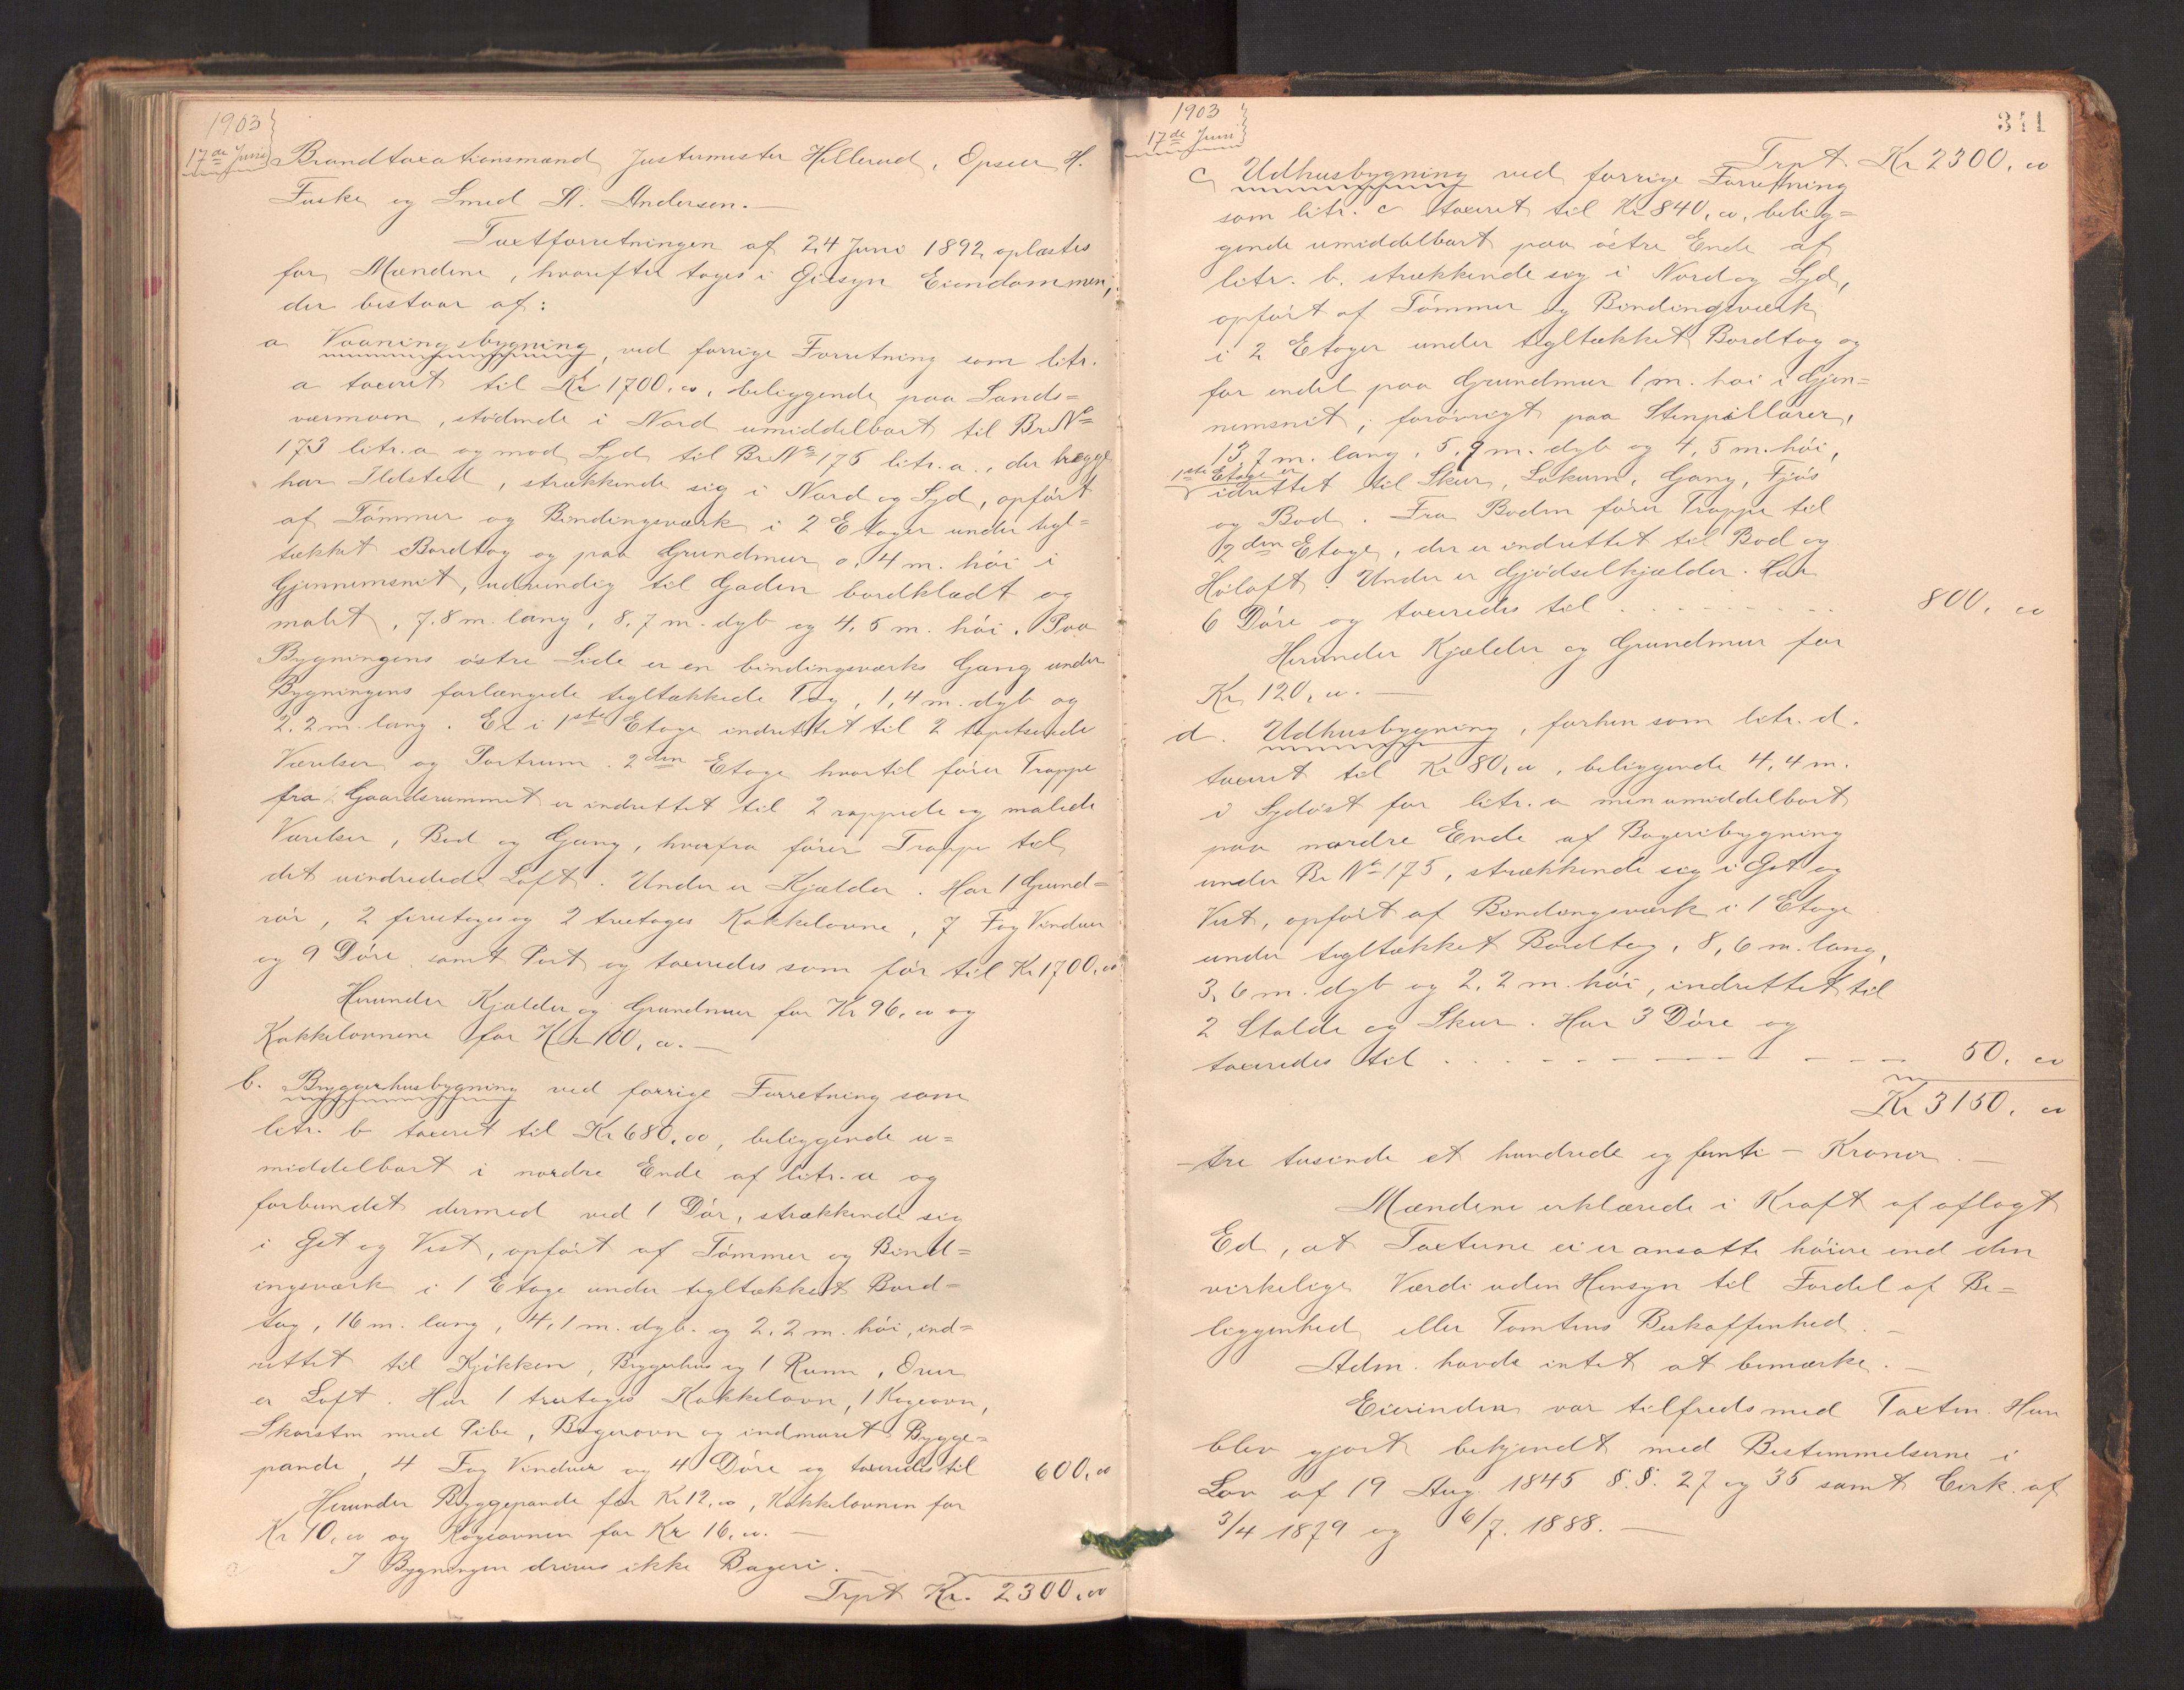 1903
17de Juni
Brandtaxationsmænd Justermester Hillerud, Opseer H.
Fuske og Smed A. Andersen.—
Taxtforretningen af 24 Juni 1892 oplæstes
for Mændene, hvorefter toges i Öiesyn Eiendommen,
der bestaar af:
a Vaaningsbygning, ved forrige Forretning som litr.
a taxeret til Kr 1700.00, beliggende paa Sands=
værmoen, stödende i Nord umiddelbart til Br No
173 litr. a og mod Syd til Br No 175 litr. a., der begge
har Ildsted, strækkende sig i Nord og Syd, opfört
af Tömmer og Bindingsværk i 2 Etager under tegl=
tækket Bordtag og paa Grundmur 0,4 m. höi i
Gjennemsnit, udvendig til Gaden bordklædt og
malet, 7.8 m. lang, 8,7 m. dyb og 4,5 m. höi. Paa
Bygningens östre Side er en bindingsværks Gang under
Bygningens forlængede tegltækkede Tag, 1,4 m. dyb og
2,2 m. lang. Er i 1ste Etage indrettet til 2 tapetserede
Værelser og Portrum. 2den Etage hvortil förer Trappe
fra Gaardsrummet er indrettet til 2 rappede og malede
Værelser, Bod og Gang, hvorfra förer Trappe til
det uindredede Loft. Under er Kjælder. Har 1 Grund=
rör, 2 firetages og 2 treetages Kakkelovne, 7 Fag Vinduer
og 9 Döre samt Port og taxeredes som för til Kr 1700,00
Herunder Kjælder og Grundmur for Kr 96,00 og
Kakkelovnene for Kr 100,00.—
b. Bryggerhusbygning ved forrige Forretning som
litr. b taxeret til Kr 680,00, beliggende u=
middelbart i nordre Ende af litr. a og
forbundet dermed ved 1 Dör, strækkende sig
i Öst og Vest, opfört af Tömmer og Bind=
ingsværk i 1 Etage under tegltækket Bord=
tag, 16 m. lang, 4,1 m. dyb. og 2,2 m. höi, ind=
rettet til Kjökken, Bryggerhus og 1 Rum, Over
er Loft. Har 1 treetages Kakkelovn, 1 Kogeovn,
Skorsten med Pibe, Bagerovn og indmuret Brygge=
pande, 4 Fag Vinduer og 4 Döre og taxeredes til 600,00
Herunder Bryggepande for Kr 12,00, Kakkelovnen for
Kr 10,00 og Kogeovnen for Kr 16,00.—
I Bygningen drives ikke Bageri.—
Trpt Kr. 2300,00
1903
17de Juni
341
Trpt. Kr 2300,00
c Udhusbygning ved forrige Forretning
som litr. c taxeret til Kr 840,00, belig=
gende umiddelbart paa östre Ende af
litr. b. strækkende sig i Nord og Syd,
opfört af Tömmer og Bindingsværk
i 2 Etager under tegltækket Bordtag og
for endel paa Grundmur 1 m. höi i Gjen=
nemsnit, forövrigt paa Stenpillarer,
13,7 m. lang, 5,9 m. dyb og 4,5 m. höi,
1ste Etage er
idrettet til Skur, Lokum, Gang, Fjös
og Bod. Fra Boden förer Trappe til
2den Etage, der er indrettet til Bod og
Höloft. Under er Gjödselkjælder. Har
6 Döre og taxeredes til . . . . . . . . . 800,00
Herunder Kjælder og Grundmur for
Kr 120,00.—
d. Udhusbygning, forhen som litr. d.
taxeret til Kr 80,00, beliggende 4,4 m.
i Sydöst for litr. a men umiddelbart
paa nordre Ende af Bageribygning
under Br No 175, strækkende sig i Öst og
Vest, opfört af Bindingsværk i 1 Etage
under tegltækket Bordtag, 8,6 m. lang,
3,6 m. dyb og 2,2 m. höi, indrettet til
2 Stalde og Skur. Har 3 Döre og
taxeredes til . . . . . . . . . . . 50,00
Kr 3150,00
— tre tusinde et hundrede og femti — Kroner.—
Mændene erklærede i Kraft af aflagt
Ed, at Taxterne ei er ansatte höiere end den
virkelige Værdi uden Hensyn til Fordel af Be=
liggenhed eller Tomtens Beskaffenhed.—
Adm. havde intet at bemærke.—
Eierinden var tilfreds med Taxten. Hun
blev gjort bekjendt med Bestemmelserne i
Lov af 19 Aug. 1845 §.§. 27 og 35 samt Cirk. af
3/4 1879 og 6/7. 1888.—